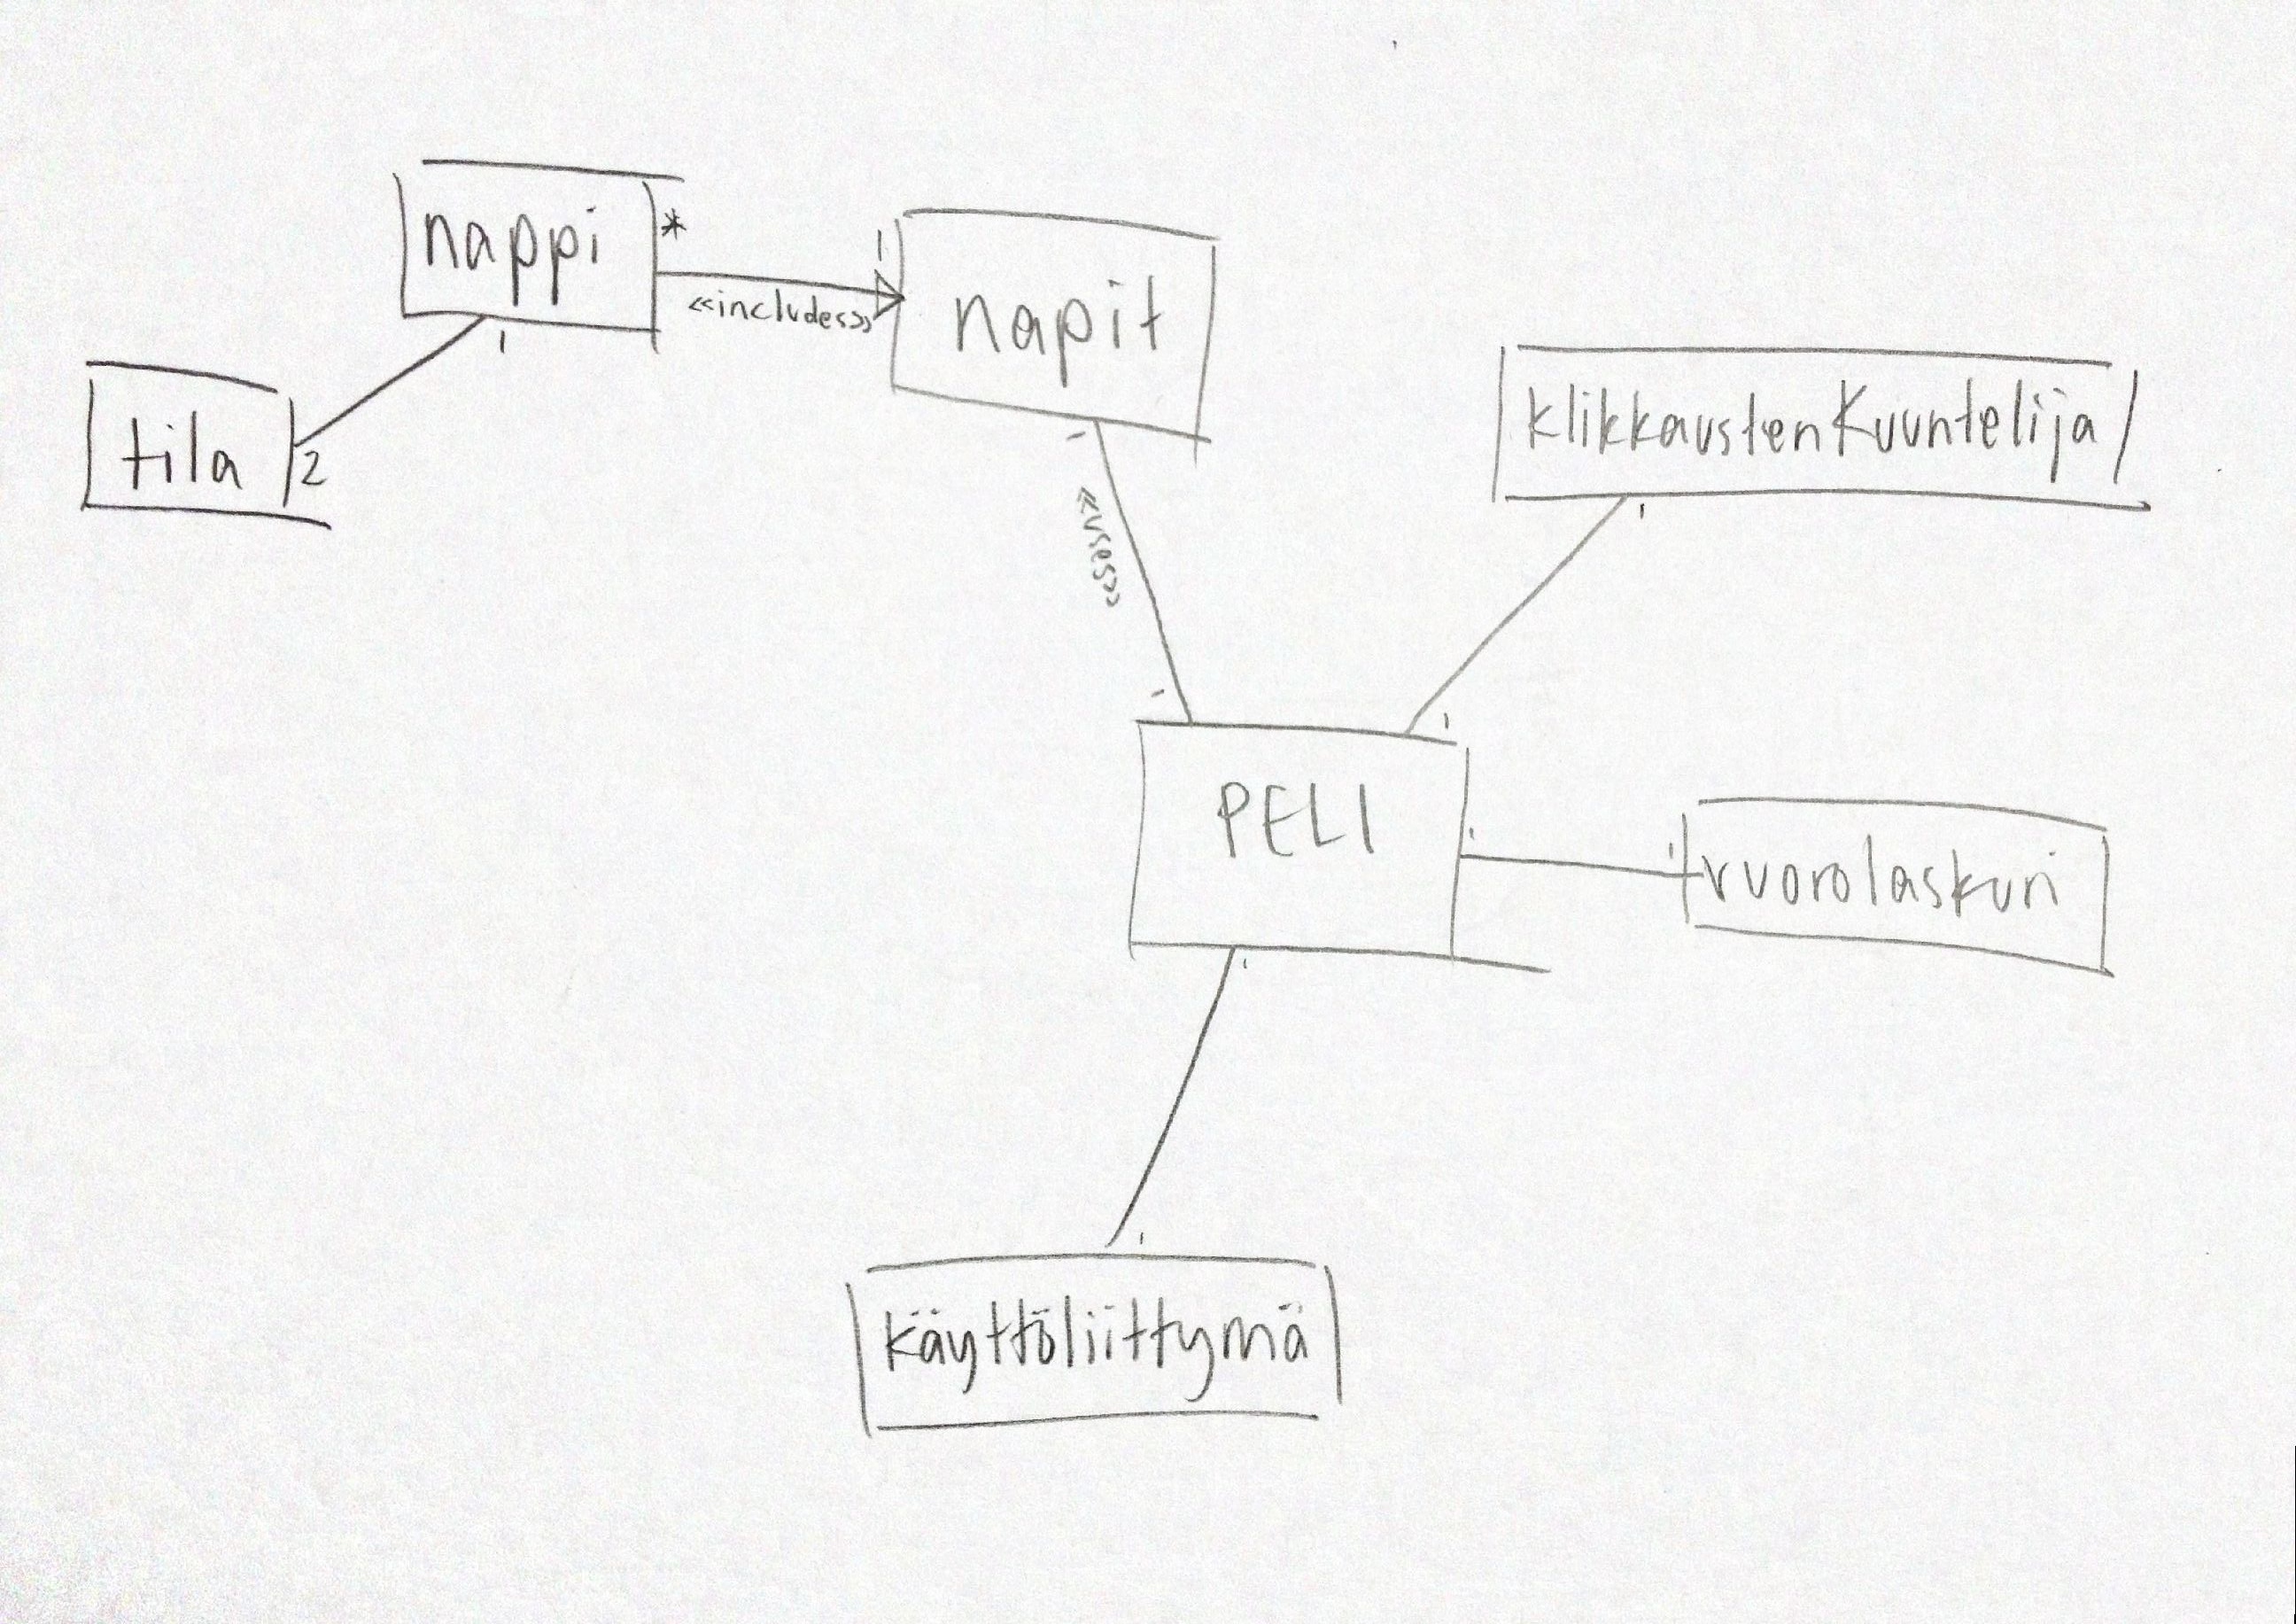 nappi
*
1
«includes»
napit
tila
2
1
klikkaustenKuuntelija
1
1
«uses»
1
1
PELI
1
1
vuorolaskuri
1
1
käyttöliittymä